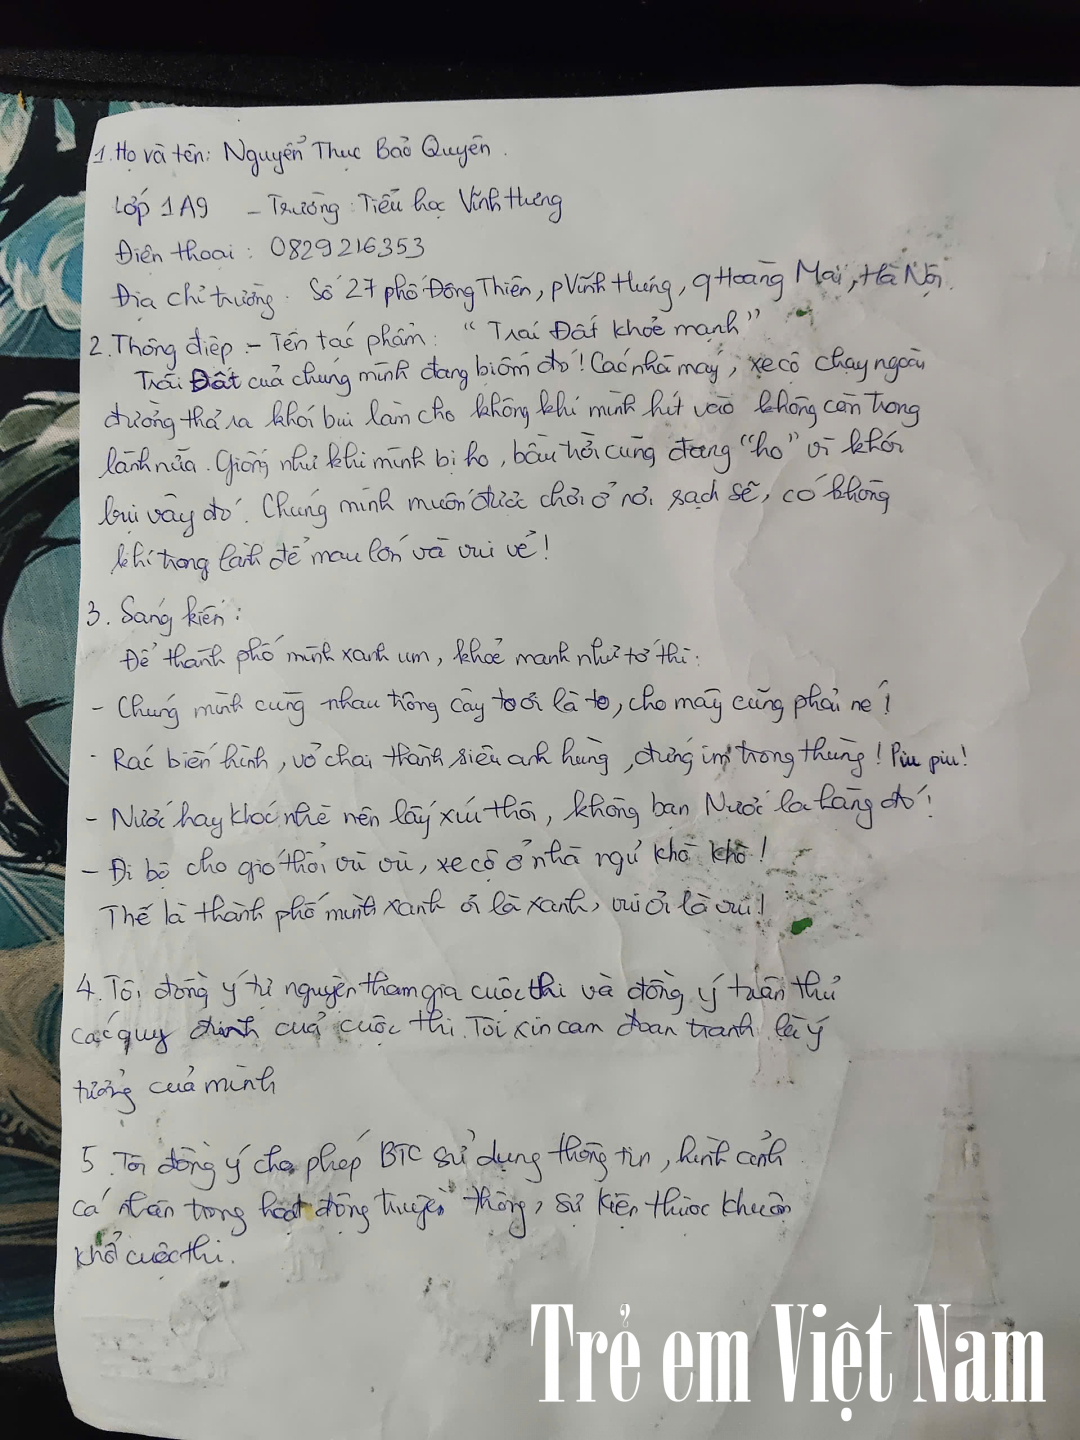 1. Họ và tên: Nguyễn Thục Bảo Quyên.
Lớp 1A9 - Trường: Tiểu học Vĩnh Hưng
Điện thoại: 0829216353
Địa chỉ trường: Số 27 phố Đông Thiên, p Vĩnh Hưng, q Hoàng Mai, Hà Nội.
2. Thông điệp - Tên tác phẩm: "Trái Đất khoẻ mạnh"
Trái Đất của chúng mình đang bị ốm đó! Các nhà máy, xe cộ chạy ngoài
đường thả ra khói bụi làm cho không khí mình hít vào không còn trong
lành nữa. Giống như khi mình bị ho, bầu trời cũng đang "ho" vì khói
bụi vậy đó. Chúng mình muốn được chơi ở nơi sạch sẽ, có không
khí trong lành để mau lớn và vui vẻ!
3. Sáng kiến:
Để thành phố mình xanh um, khoẻ mạnh như tớ thì:
- Chúng mình cùng nhau trồng cây to ơi là to, cho mây cũng phải né!
- Rác biến hình, vỏ chai thành siêu anh hùng, đứng im trong thùng! Piu piu!
- Nước hay khóc nhè nên lấy xíu thôi, không bạn Nước la hàng đó!
- Đi bộ cho gió thổi vù vù, xe cộ ở nhà ngủ khò khò!
Thế là thành phố mình xanh ơi là xanh, vui ơi là vui!
4. Tôi đồng ý tự nguyện tham gia cuộc thi và đồng ý tuân thủ
các quy định của cuộc thi. Tôi xin cam đoan tranh là ý
tưởng của mình
5. Tôi đồng ý cho phép BTC sử dụng thông tin, hình ảnh
cá nhân trong hoạt động truyền thông, sự kiện thuộc khuôn
khổ cuộc thi.
Trẻ em Việt Nam